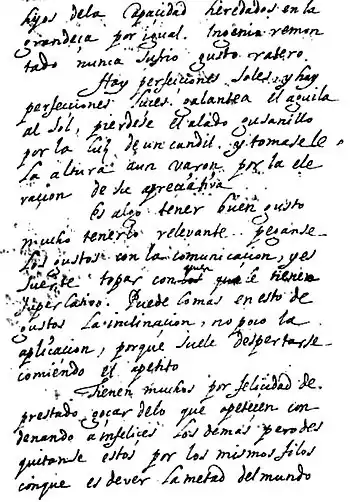 hijos dela Capacidad heredados en la
grandeça por igual. Ingenio remon
tado nunca sufrio gusto ratero.
Hay perfeciones soles, y hay
perfecciones luces. galantea el aguila
al sol, pierdese el alado gusanillo
por la luz de un candil. y tomasele
la altura a un varon por la ele
vacion de su apreciativa
Es algo tener buen gusto
mucho tenerlo relevante. peganse
los gustos con la comunicacion, y es
suerte topar con quien le tiene
superlativo. Puede lo mas en esto de
gustos la inclinacion, no poco la
aplicacion, porque suele despertarse
comiendo el apetito
Tienen muchos por felicidad de
prestado goçar delo que apeteçen con
denando a infelices los demas pero des
quitanse estos por los mismos filos
conque es de ver la metad del mundo